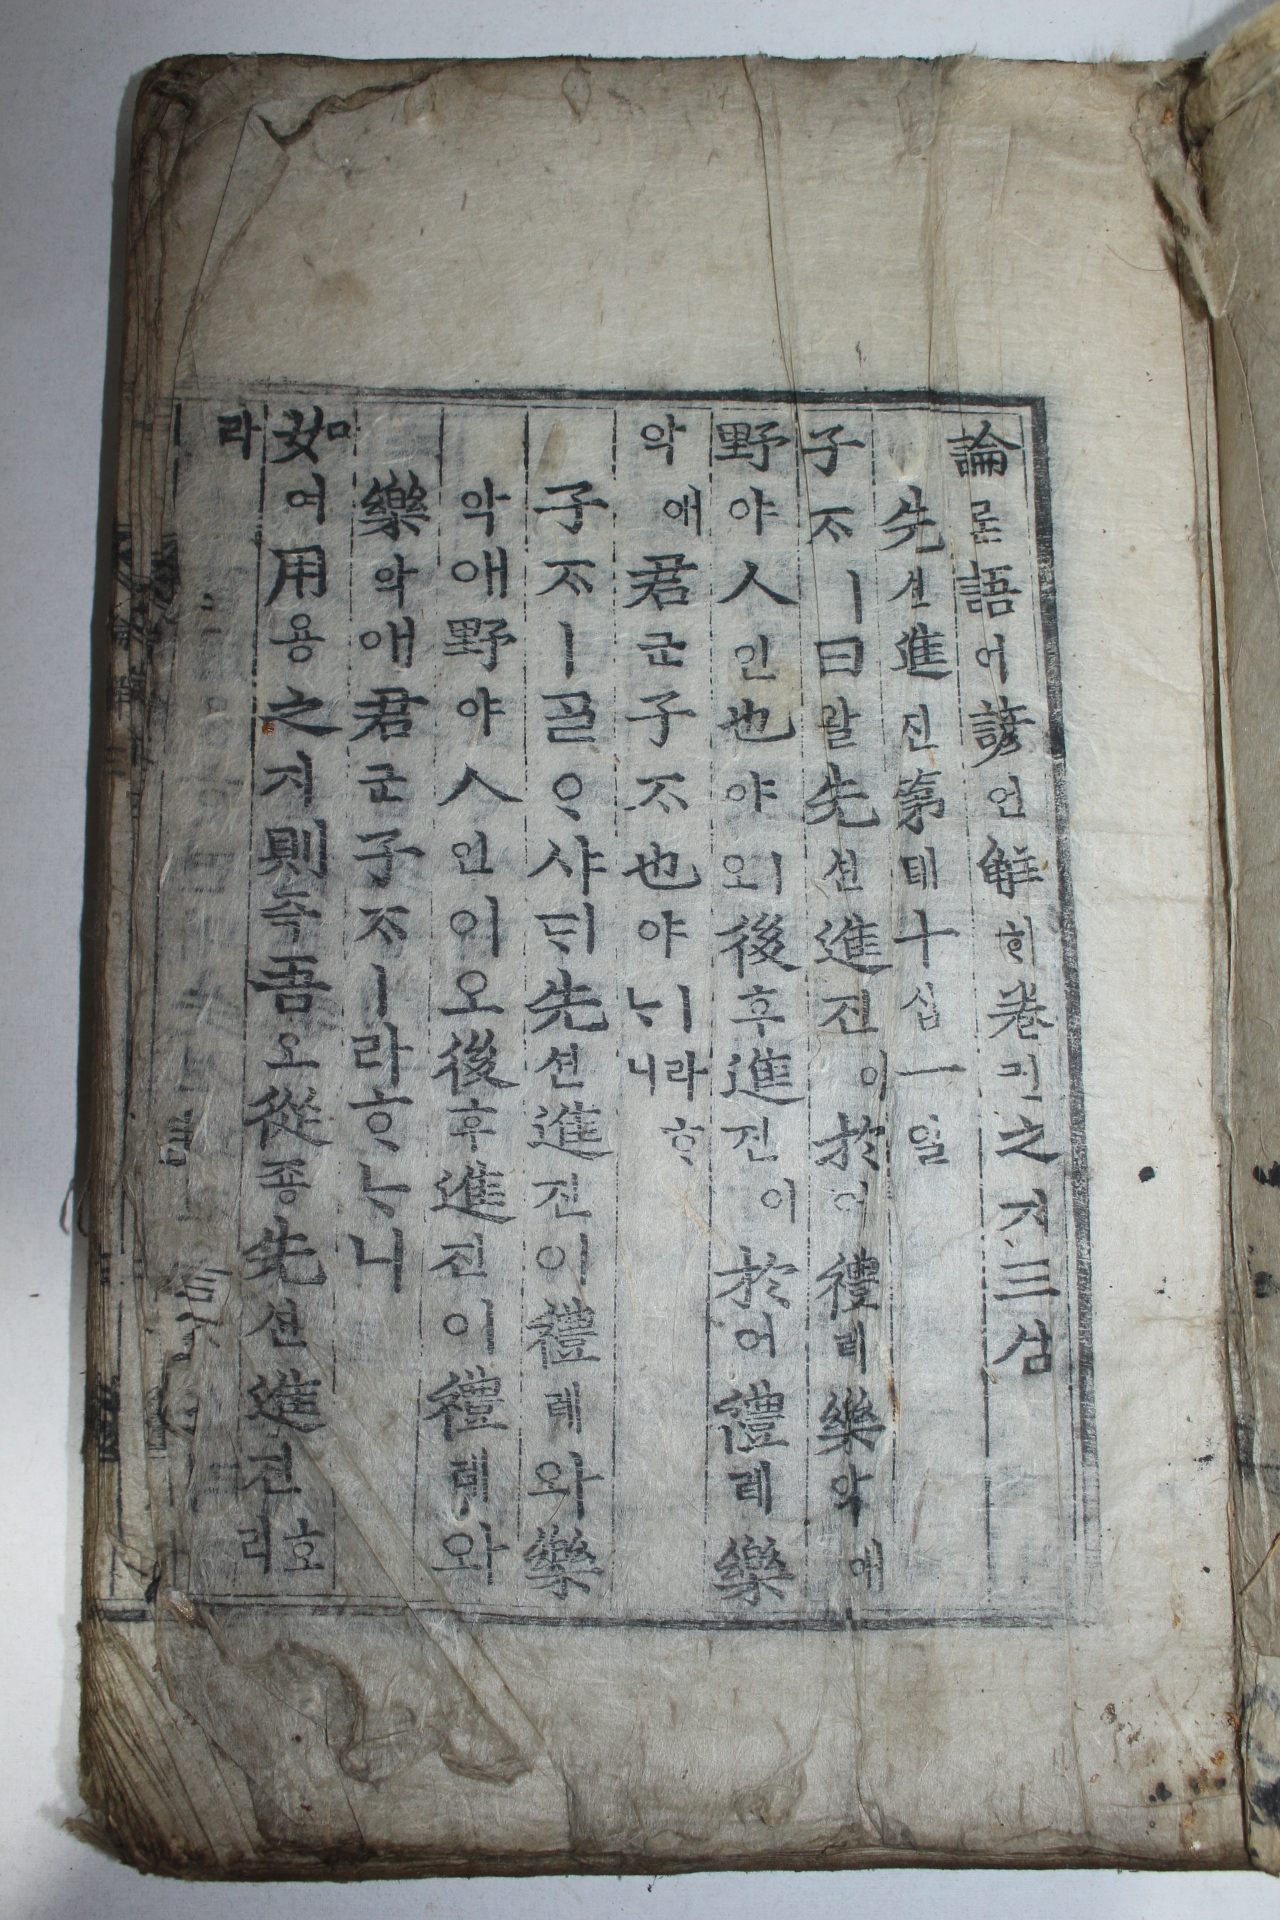 論론語어諺언解ᄒᆡ卷권之지三삼
先션進진第뎨十십一일
子ᄌᆞㅣ曰왈先션進진이於어禮례樂악애
野야人인也야오後후進진이於어禮례樂
악애君군子ᄌᆞ也야ㅣ라ᄒᆞᄂᆞ니
子ᄌᆞㅣᄀᆞᆯᄋᆞ샤ᄃᆡ先션進진이禮례와樂
악애野야人인이오後후進진이禮례와
樂악애君군子ᄌᆞㅣ라ᄒᆞᄂᆞ니
如여用용之지則즉吾오從죵先션進진호리
라